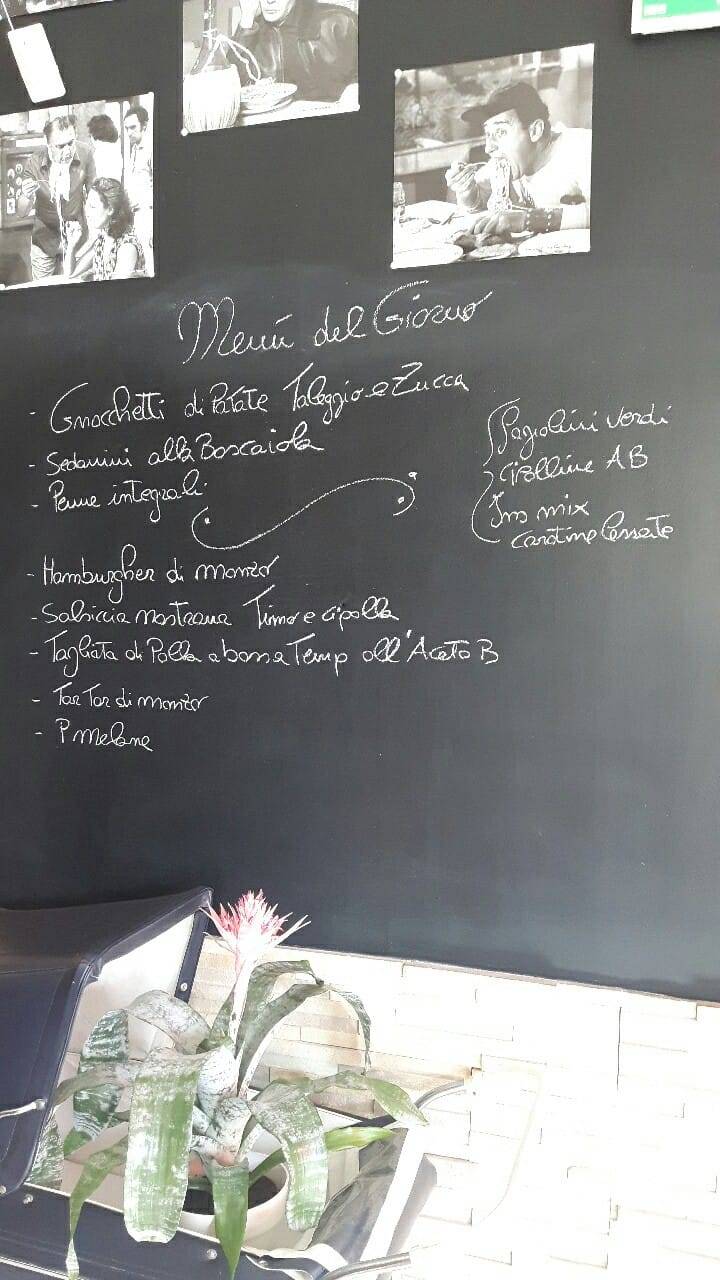 Menú del Giorno
- Gnocchetti di Patate Taleggio e Zucca
- Sedanini alla Boscaiola
- Penne integrali
- Hamburgher di manzo
- Salsiccia nostrana Timo e cipolla
- Tagliata di Pollo a bassa Temp all'Aceto B
- Tar Tar di manzo
- P Melone
Fagiolini verdi
Cipolline AB
Ins mix
carotine lessate